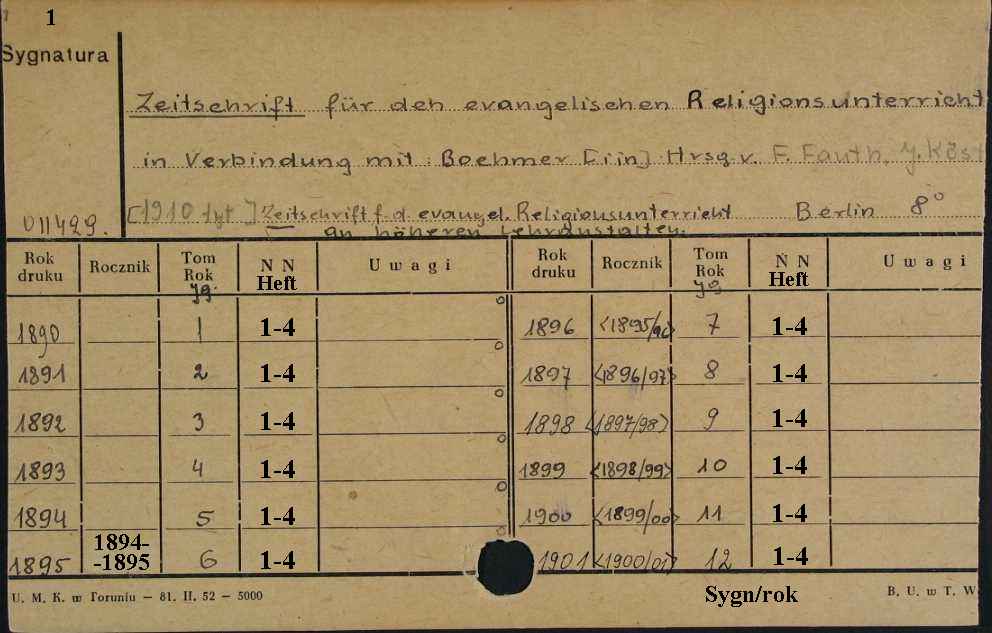 1
Sygnatura
Zeitschrift für den evangelischen Religionsunterricht
in Verbindung mit : Boehmer [iin] Hrsg. v. F. Fauth, J. Köst
011429. [1910 tyt ] Zeitschrift f. d. evangel. Religionsunterricht Berlin 8°
an höheren Lehranstalten.
Rok druku Rocznik Tom Rok Jg. N N Heft Uwagi Rok druku Rocznik Tom Rok Jg N N Heft Uwagi
1890 1 1-4 1896 <1895/96> 7 1-4
1891 2 1-4 1897 <1896/97> 8 1-4
1892 3 1-4 1898 <1897/98> 9 1-4
1893 4 1-4 1899 <1898/99> 10 1-4
1894 5 1-4 1900 <1899/00> 11 1-4
1895 1894--1895 6 1-4 1901 <1900/01> 12 1-4
U. M. K. w Toruniu – 81. II. 52 – 5000 Sygn/rok B. U. w T. W